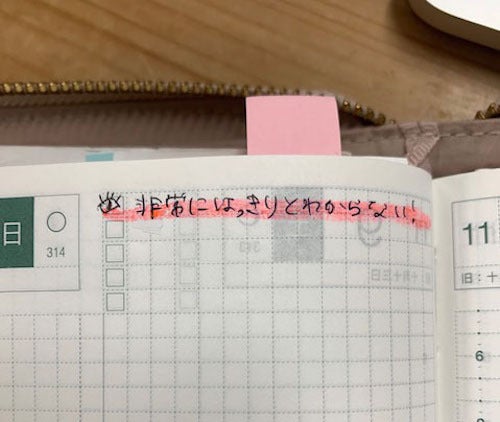 非常にはっきりとわからない!
日
314
11
旧:十
6
8